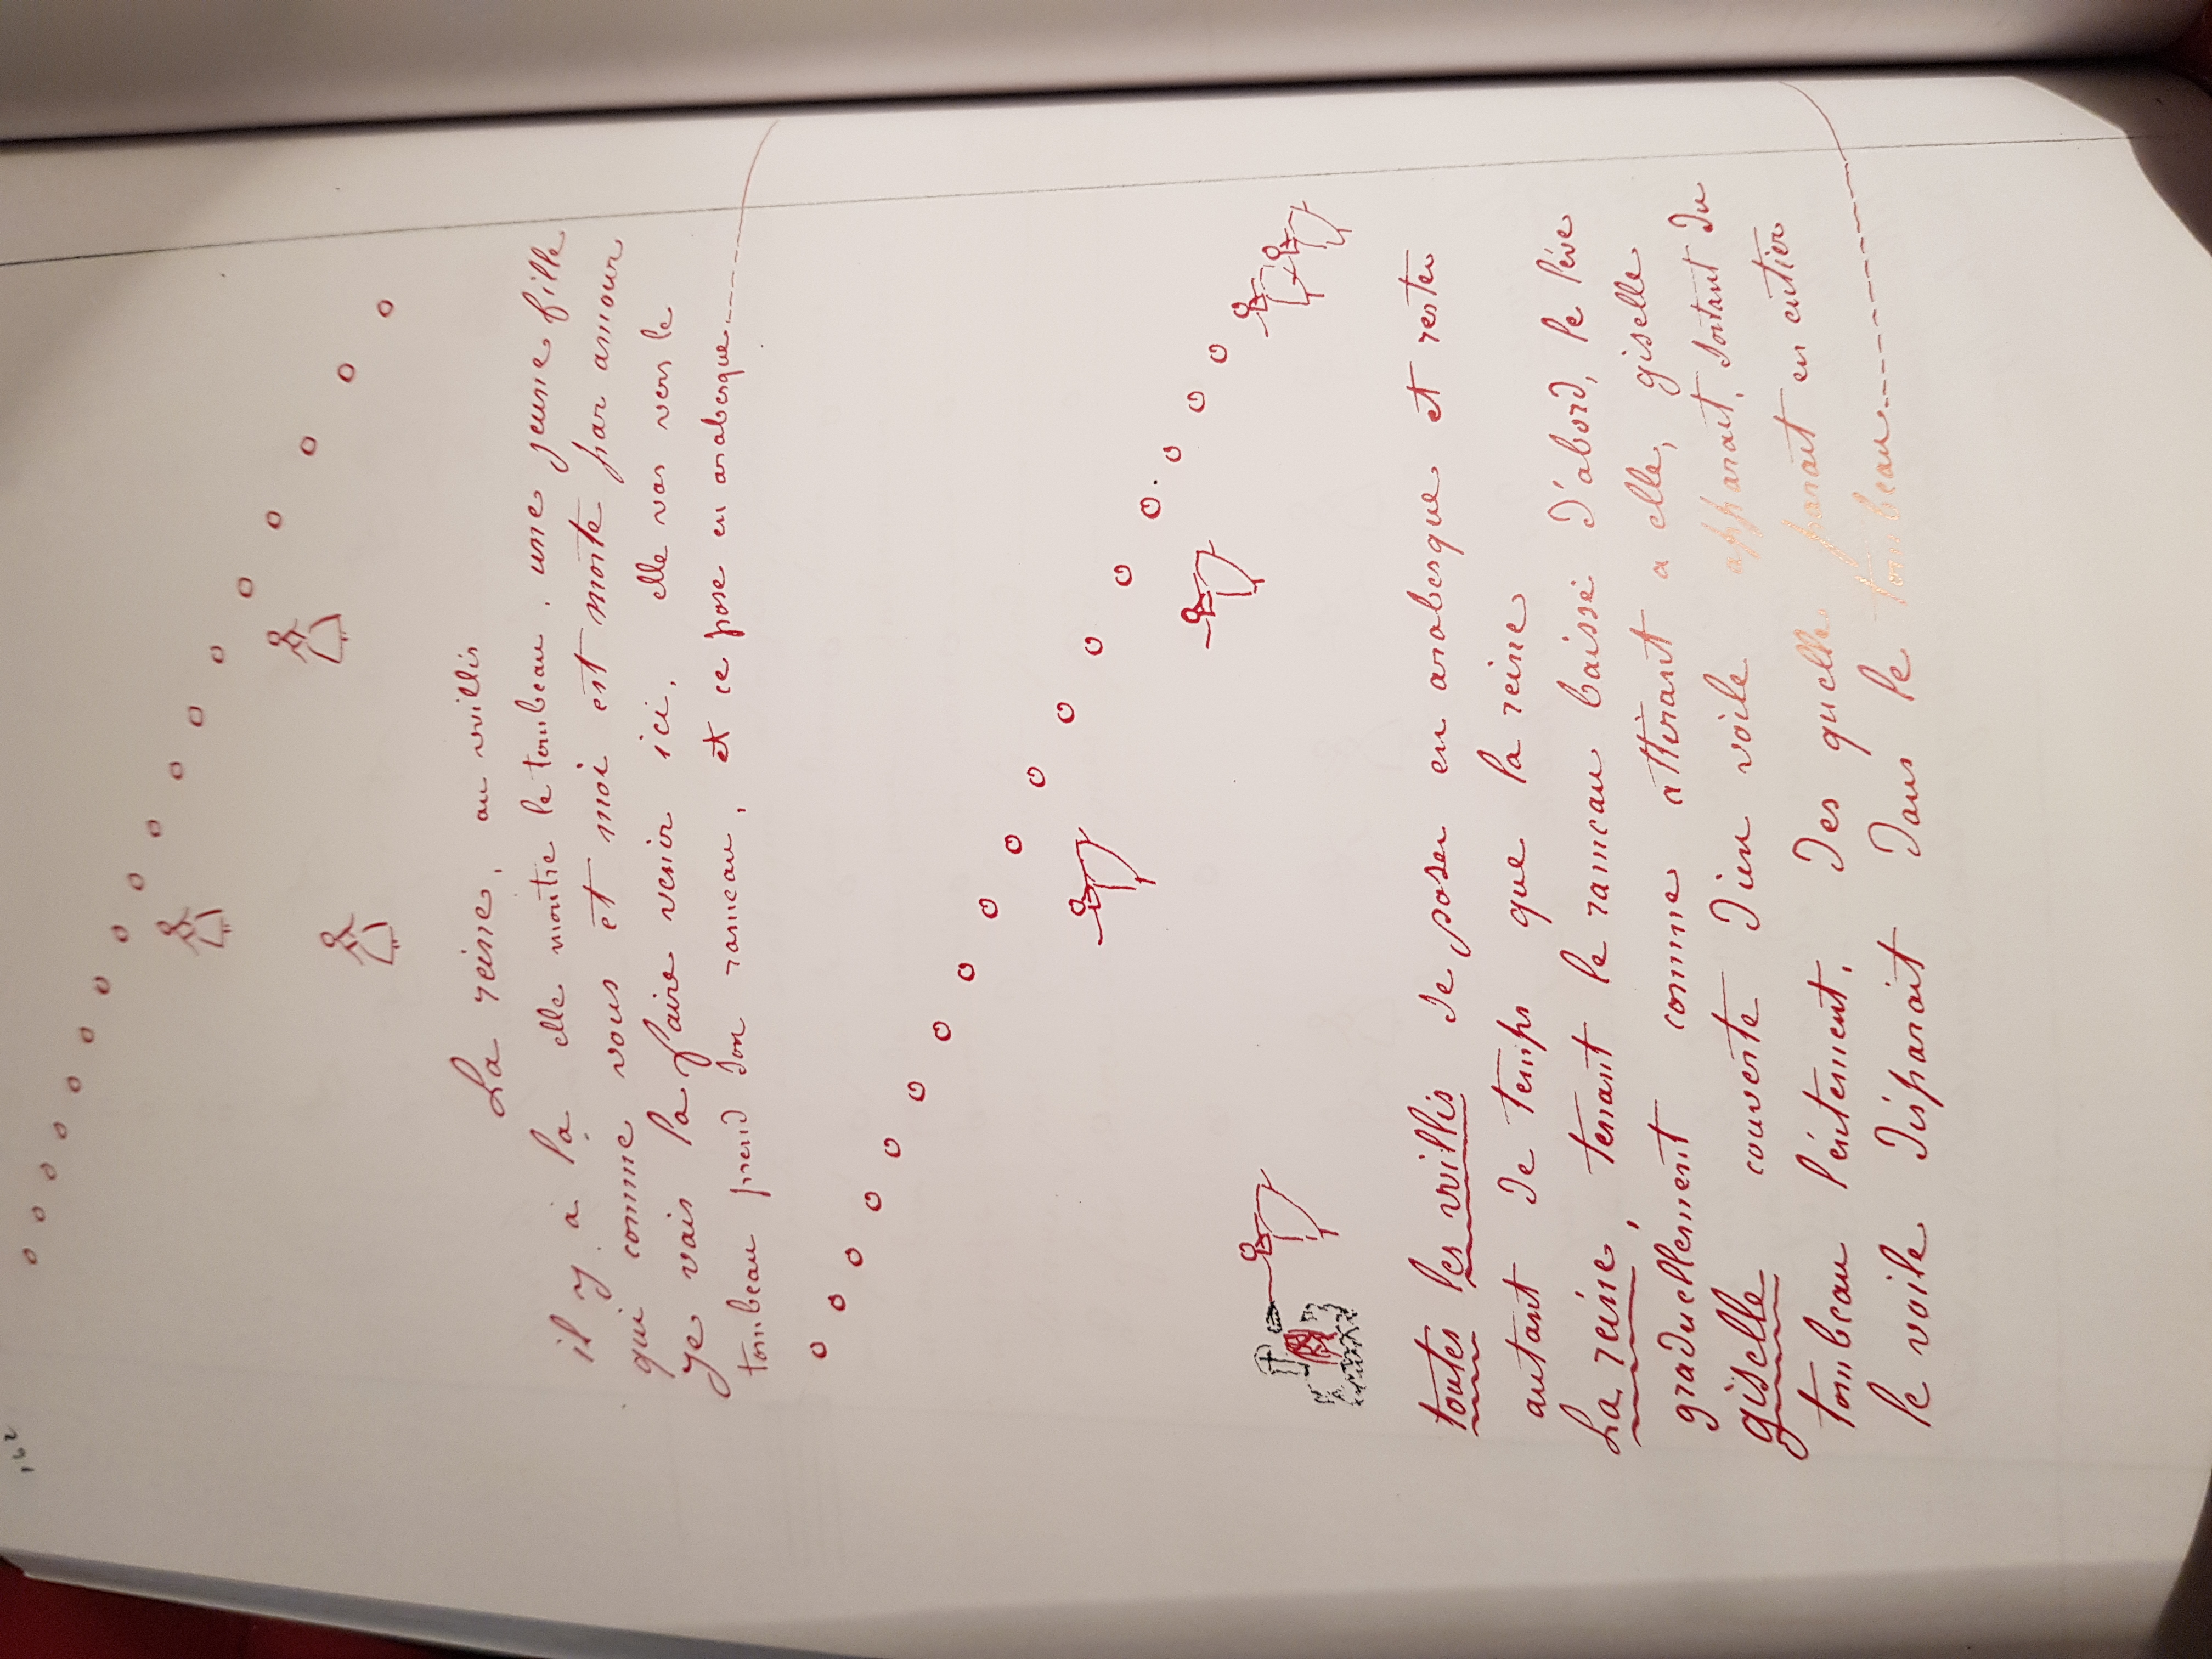 162
La reine, au willis
il y a la elle montre le tombeau, une jeune fille
qui comme vous et moi est morte par amour
je vais la faire venir ici. elle vas vers le
tombeau prend son rameau, et ce pose en arabesque
toutes les willis se poser en arabesque et rester
autant de temps que la reine
La reine, tenant le rameau baissé d'abord, le léve
graduellement comme attirant a elle, giselle
giselle couverte d'un voile apparait, sortant du
tombeau léntement. des quelle parait en entier
le voile disparait dans le tombeau